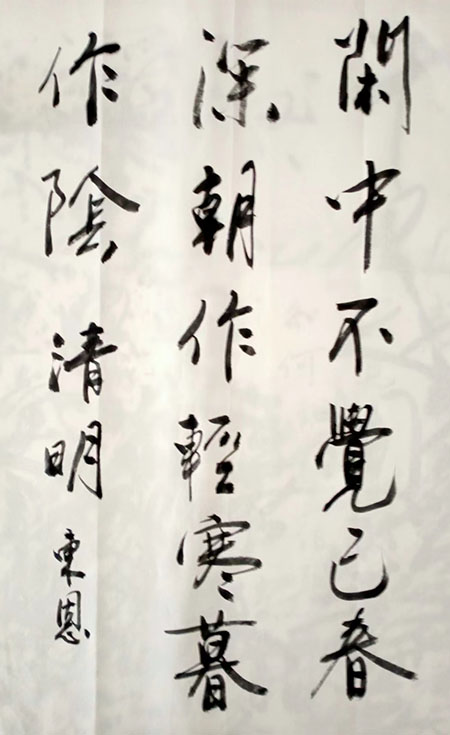 閑中不覺已春
深朝作輕寒暮
作陰清明
東恩